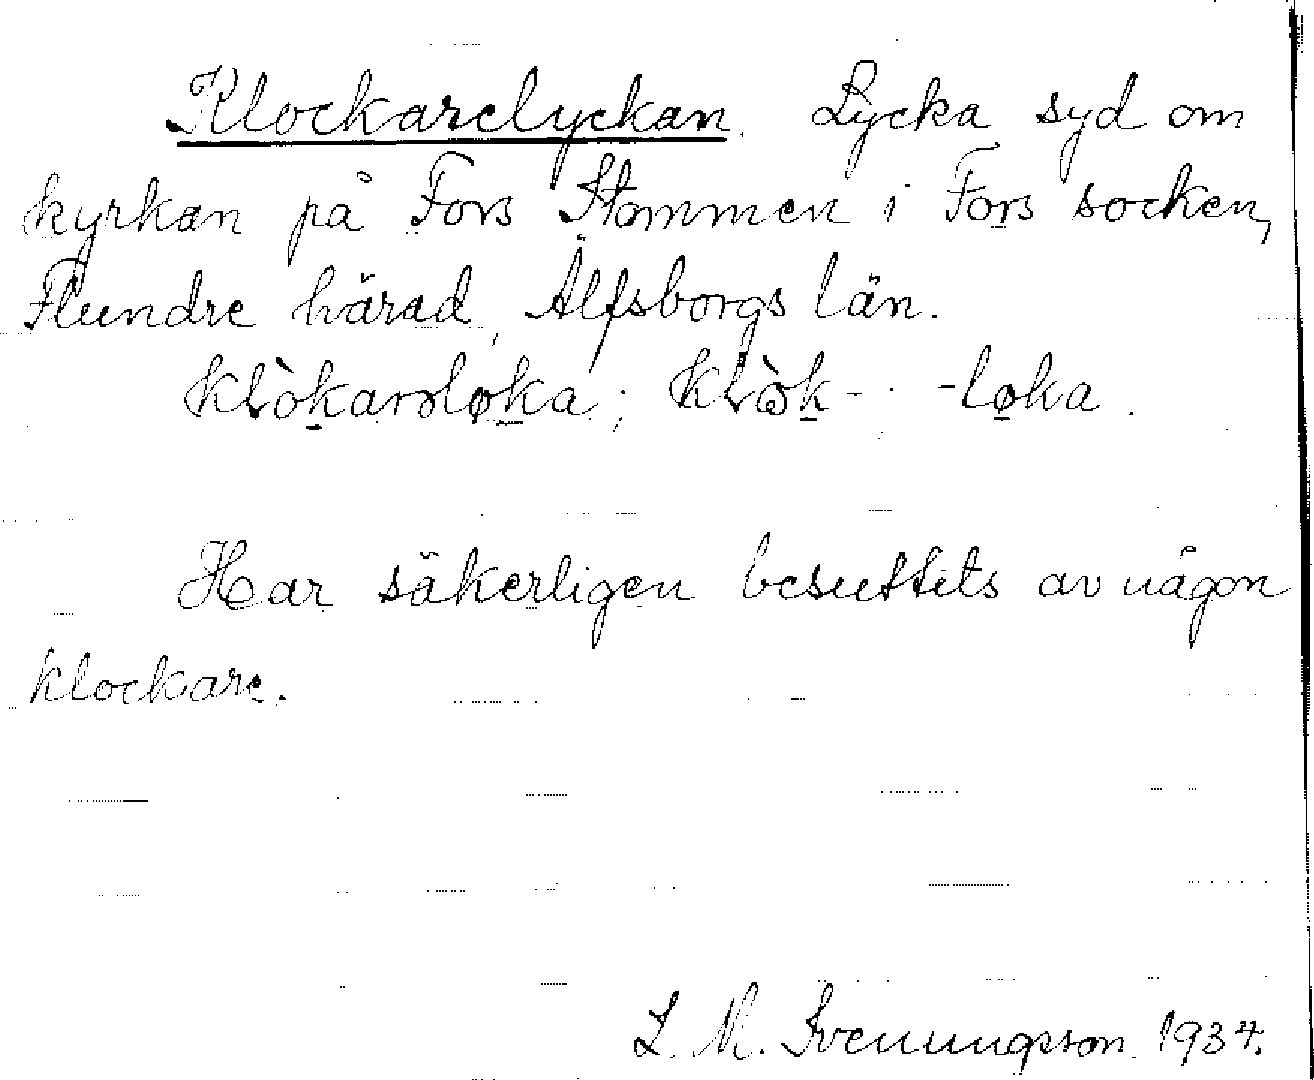 Klockarelyckan. Lycka syd om
kyrkan på Fors Stommen i Fors socken,
Flundre härad, Älfsborgs län.
klòkarəløka; klòk- -løka.
Har säkerligen besuttits av någon
klockare.
L. M. Svenungsson 1934.